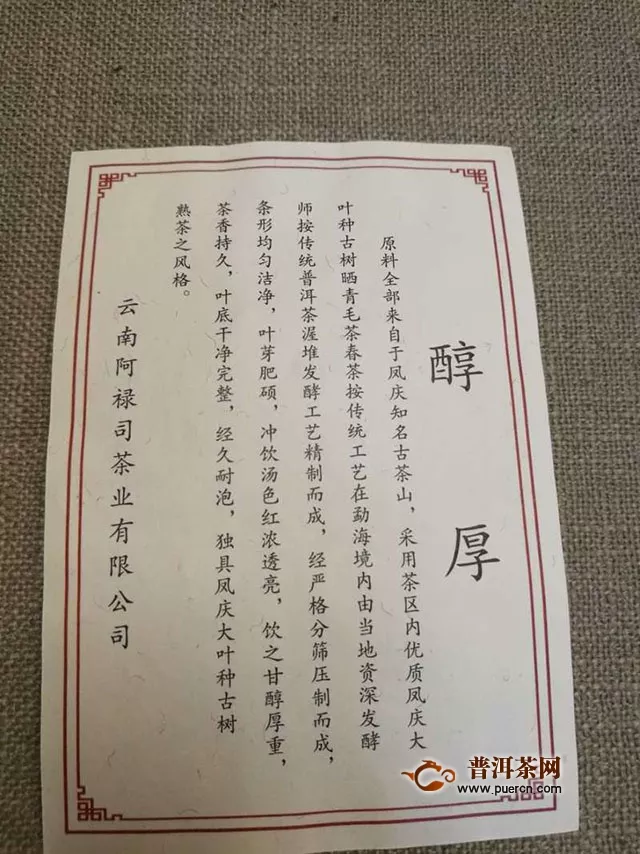 醇厚
原料全部来自于凤庆知名古茶山，采用茶区内优质凤庆大
叶种古树晒青毛茶春茶按传统工艺在勐海境内由当地资深发酵
师按传统普洱茶渥堆发酵工艺精制而成，经严格分筛压制而成，
条形均匀洁净，叶芽肥硕，冲饮汤色红浓透亮，饮之甘醇厚重，
茶香持久，叶底干净完整，经久耐泡，独具凤庆大叶种古树
熟茶之风格。
云南阿禄司茶业有限公司
普洱茶网
www.puercn.com